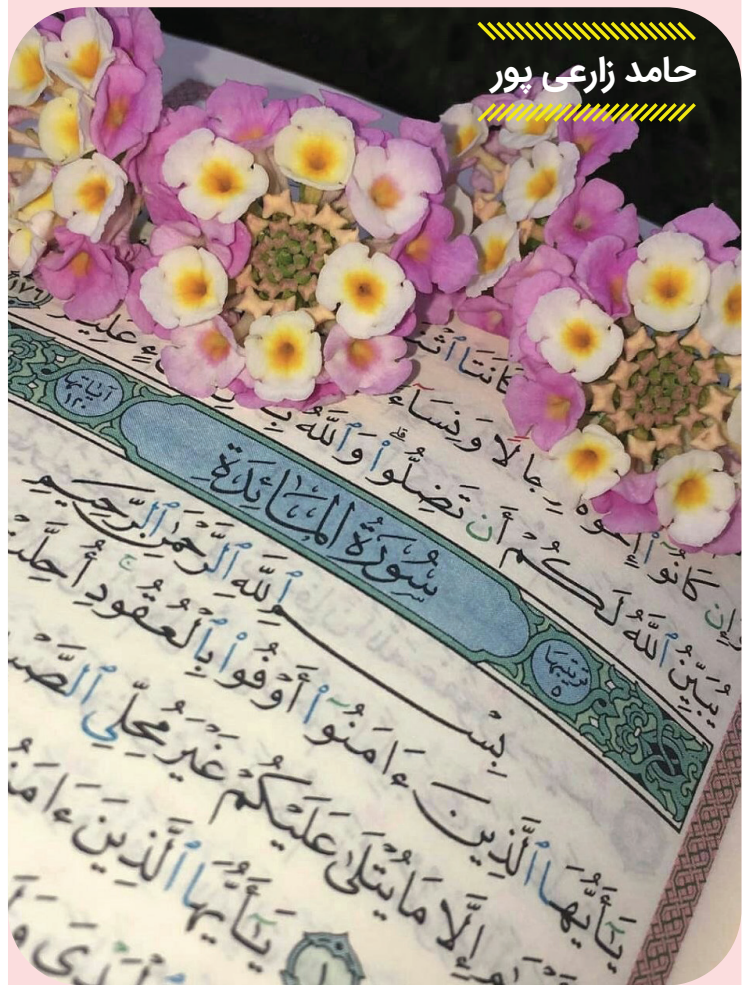 حامد زارعی پور
١٧٦
كَانَتَا ٱثْنَ
عَلِيمٌ
وَإِن كَانُوٓا۟ إِخْوَةً رِّجَالًا وَنِسَآءً
يُبَيِّنُ ٱللَّهُ لَكُمْ أَن تَضِلُّوا۟ ۗ وَٱللَّهُ
آياتها ١٢٠
سُورَةُ المَائِدَةِ
ترتيبها ٥
بِسْمِ ٱللَّهِ ٱلرَّحْمَٰنِ ٱلرَّحِيمِ
يَـٰٓأَيُّهَا ٱلَّذِينَ ءَامَنُوٓا۟ أَوْفُوا۟ بِٱلْعُقُودِ ۚ أُحِلَّتْ
إِلَّا مَا يُتْلَىٰ عَلَيْكُمْ غَيْرَ مُحِلِّى ٱلصَّ
١ يَـٰٓأَيُّهَا ٱلَّذِينَ ءَامَنُ